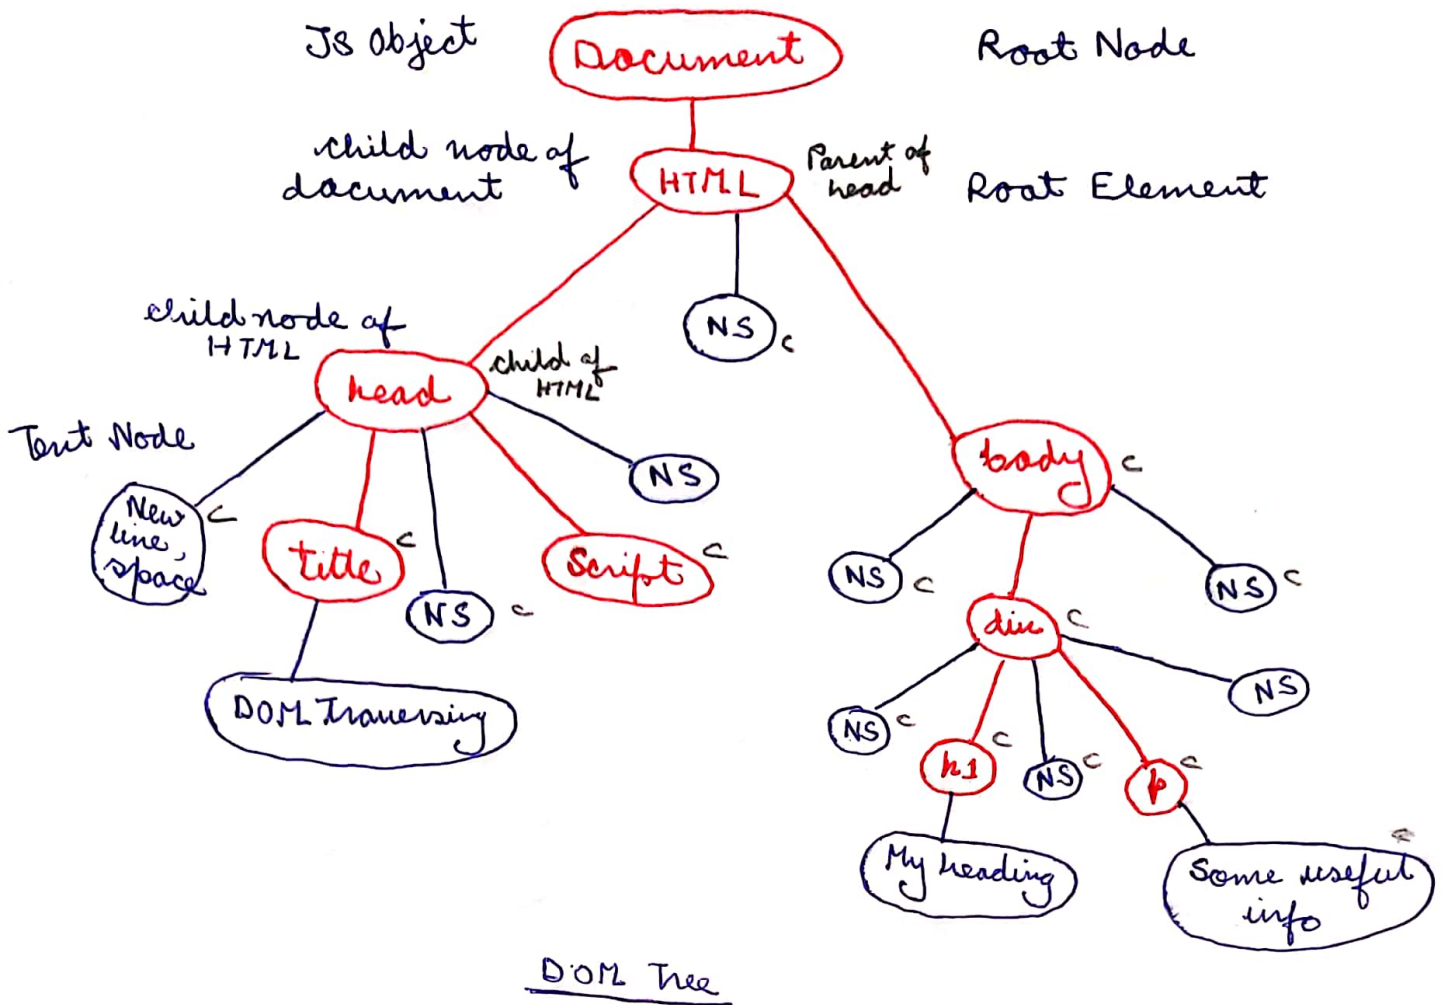 JS Object
Document
Root Node
child node of
document
HTML
Parent of
head
Root Element
child node of
HTML
NS
c
head
child of
HTML
Text Node
NS
body
c
New
line,
space
c
title
c
NS
c
Script
c
NS
c
NS
c
div
c
DOM Traversing
NS
c
h1
c
NS
c
p
c
NS
My heading
Some useful
info
c
DOM Tree